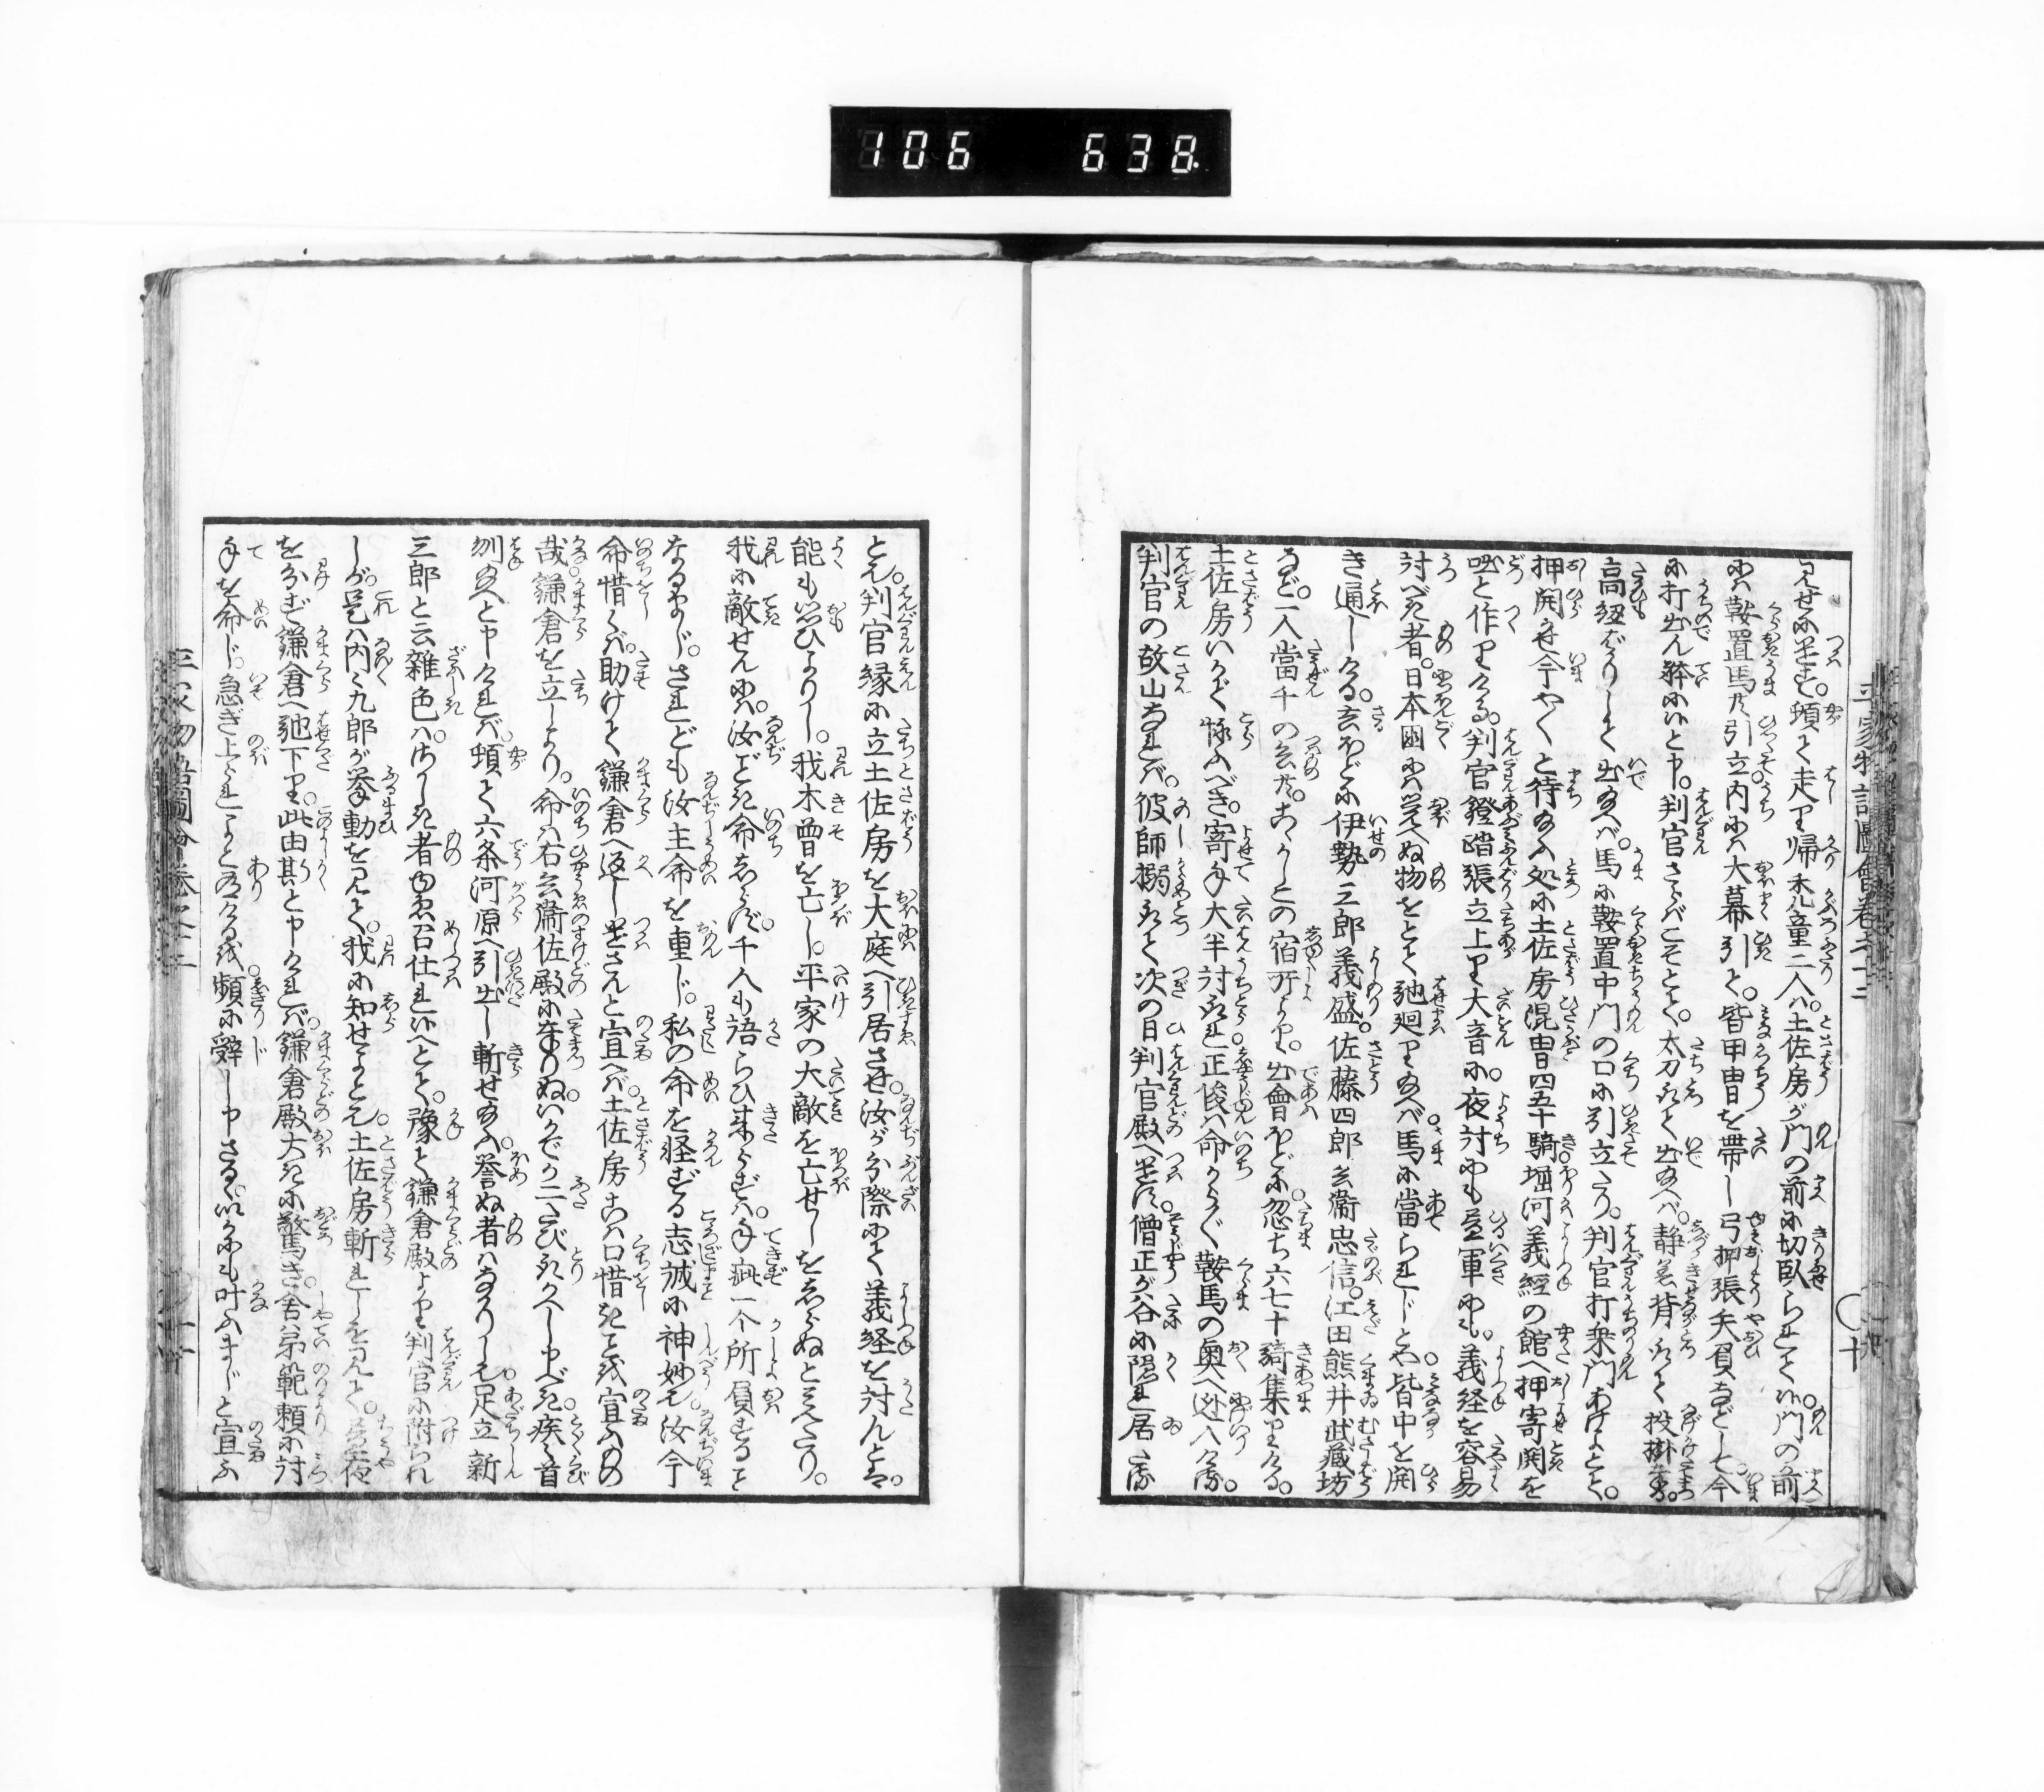 106 638
平家物語圖會卷之十二
みせに遣す。頓て走り帰禿童二人ハ土佐房が門の前に切臥られて候。門の前
にハ鞍置馬共引立内にハ大幕引て。皆甲冑を帯し弓押張矢負などして今
に打出ん躰に候と申。判官さらバこそとて。太刀取て出給へバ。静着背取て投掛奉る。
高紐ばかりして出給へバ。馬に鞍置中門の口に引立たり。判官打乗門あけよとて。
押開せ今や〱と待給ふ処に土佐房混冑四五十騎堀河義經の館へ押寄鬨を
咄と作りける。判官鐙踏張立上り大音に夜討にも昼軍にも。義経を容易
討べき者。日本国にハ覚へぬ物をとて馳廻り給へバ馬に當られじとや皆中を開
き通しける。去ほどに伊勢三郎義盛。佐藤四郎兵衞忠信。江田熊井武藏坊
など。一人當千の兵共。こゝかしこの宿所より。出會ほどに忽ち六七十騎集りける。
土佐房いかで怺ふべき。寄手大半討取れ正俊ハ命からがら鞍馬の奥へ迯入ける。
判官の故山なれバ。彼師搦取て次の日判官殿へ遣す。僧正が谷に隠れ居ける
とぞ。判官縁に立土佐房を大庭へ引居させ。汝が分際にて義経を討んとハ。
能も思ひよりし。我木曽を亡し。平家の大敵を亡せしをしらぬとみえたり。
我に敵せんにハ。汝ごとき命しらず。千人も語らひ来らずハ。手疵一个所負する事
なるまじ。されども汝主命を重じ。私の命を軽ずる志誠に神妙也。汝今
命惜くバ。助けて鎌倉へ返し遣さんと宣へバ。土佐房こハ口惜き事を宣ふもの
哉。鎌倉を立しより。命ハ右兵衞佐殿に奉りぬ。いかでか二たび取かへし申べき疾々首
刎給へと申けれバ。頓て六条河原へ引出し斬せ給ふ。誉ぬ者ハなかりし也。足立新
三郎と云雑色ハ。さかしき者ゆゑ召仕れ候へとて。豫て鎌倉殿より判官に附られ
しが。是ハ内々九郎が挙動をみて。我に知せよと也。土佐房斬れしをみて。昼夜
を分ず鎌倉へ馳下り。此由其と申けれバ。鎌倉殿大きに驚き。舎弟範頼に討
手を命じ。急ぎ上られよと有ける或。頻に辞し申さるゝ。いかにも叶ふまじと宣ふ
平家物語圖會卷之十二